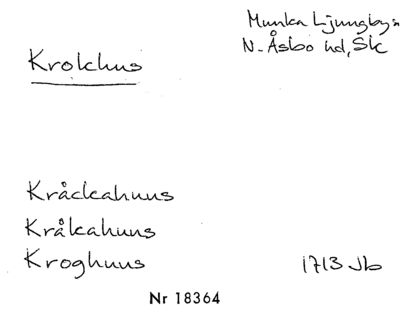 Munka Ljungby sn
N. Åsbo hd, Sk
Krokhus
Kråckahuus
Kråkahuus
Kroghuus 1713 Jb
Nr 18364